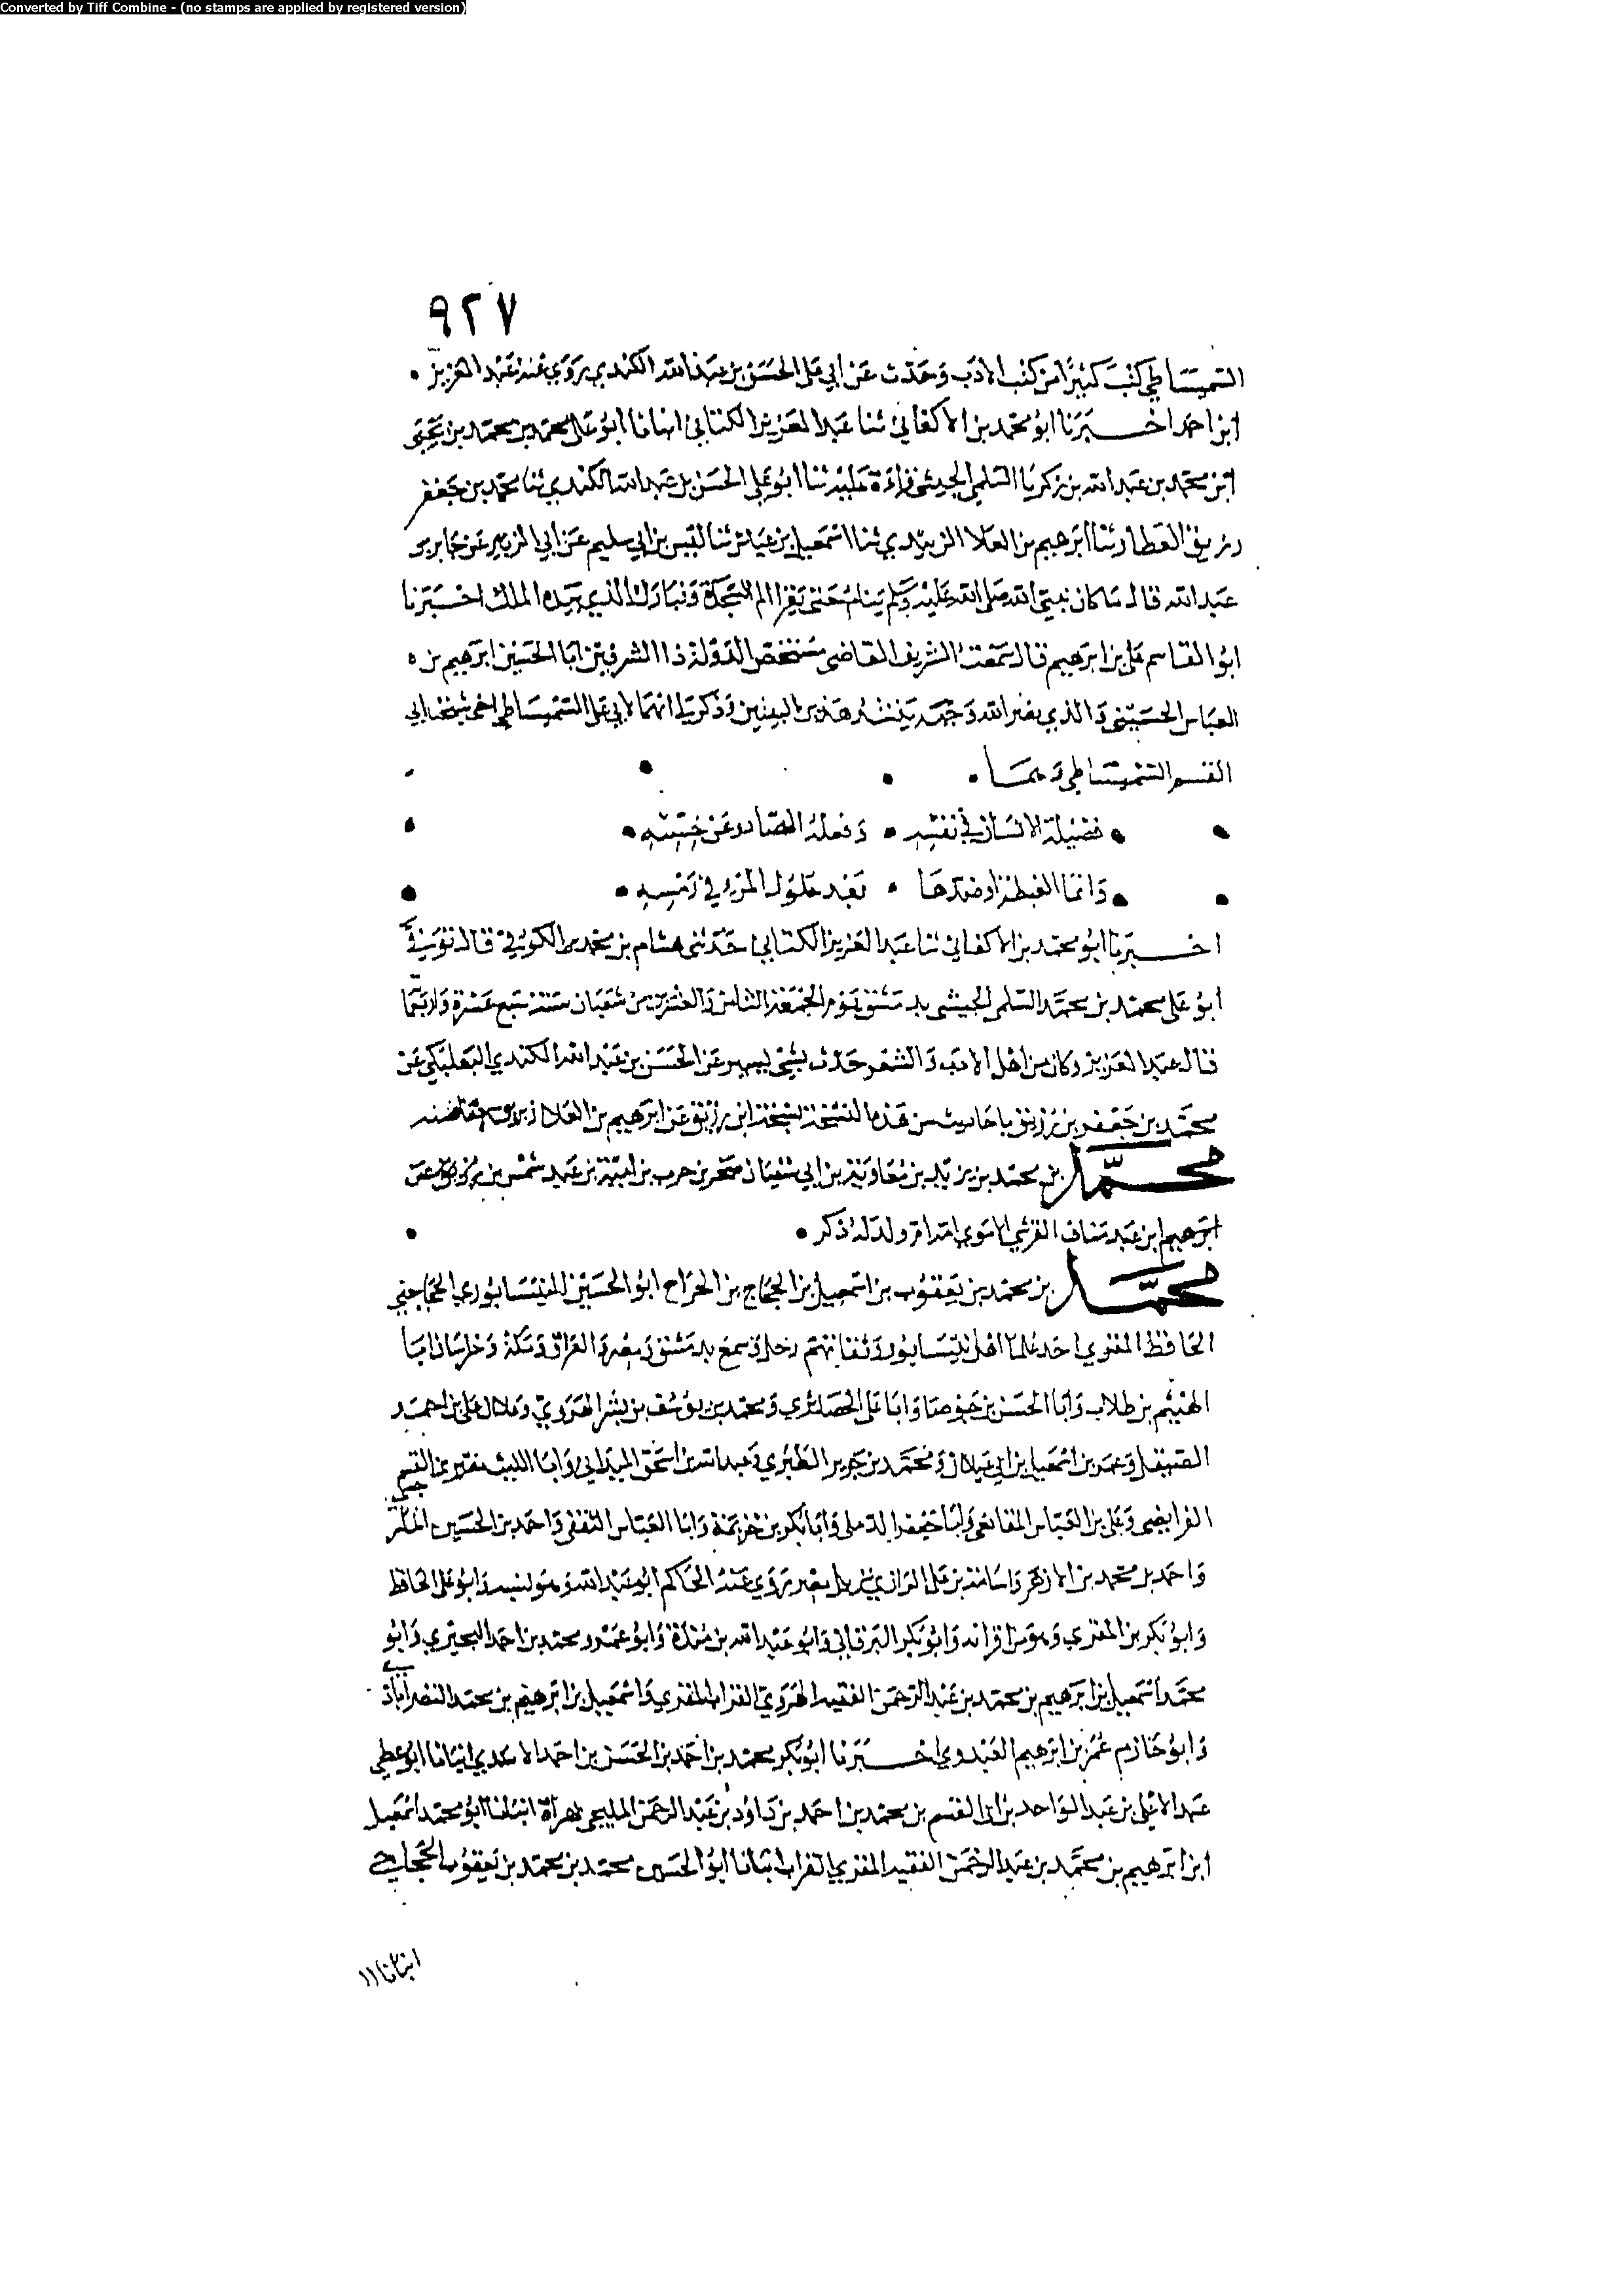 Converted by Tiff Combine - (no stamps are applied by registered version)
٩٢٧
السميساطي كتب كثيرا من كتب الادب وحدث عن ابي علي الحسن بن عبد الله الكندي روى عنه عبد العزيز
ابن احمد اخبرنا ابو محمد بن الاكفاني ثنا عبد العزيز الكتاني انبانا ابو علي محمد بن محمد بن يحيى
ابن محمد بن عبد الله بن زكريا السلمي الجيشي قراءة عليه ثنا ابو علي الحسن بن عبد الله الكندي ثنا محمد بن جعفر
رزيق العطار ثنا ابرهيم بن العلا الزبيدي ثنا اسمعيل بن عياش ثنا ليس بن ابي سليم عن ابي الزبير عن جابر بن
عبد الله قال ما كان نبي الله صلى الله عليه وسلم ينام حتى يقرا الم السجدة وتبارك الذي بيده الملك اخبرنا
ابو القاسم علي بن ابرهيم قال سمعت الشريف القاضي مستخص الدولة ذا الشرفين ابا الحسين ابرهيم بن
العباس الحسيني والذي بغير الله وجهه ينشد هذين البيتين وذكر انهما لابي علي السميساطي اخي شيخنا ابي
القسم السميساطي وهما
فضيلة الانسان في نفسه وفعله الصادر عن حسه
وانما الغبطة او ضدها بعد حلول المرء في رمسه
اخبرنا ابو محمد بن الاكفاني ثنا عبد العزيز الكتاني حدثني هشام بن محمد الكوفي قال توفي
ابو علي محمد بن محمد السلمي الجيشي بدمشق يوم الجمعة الثامن والعشرين من شعبان سنة سبع عشرة واربعما
قال عبد العزيز وكان من اهل الادب والشعر حدث بشي يسير عن الحسن بن عبد الله الكندي البعلبكي عن
محمد بن جعفر بن رزيق باحاديث من هذه النسخة نسخة ابن رزيق عن ابرهيم بن العلا زبريق
محمد بن محمد بن يزيد بن معاوية بن ابي سفيان صخر بن حرب بن امية بن عبد شمس بن
ابن عبد مناف القرشي الاموي امه ام ولد له ذكر
محمد بن محمد بن يعقوب بن اسمعيل بن الحجاج بن الجراح ابو الحسين النيسابوري الحجاجي
الحافظ المقري احد علما اهل نيسابور وثقاتهم رحل وسمع بدمشق ومصر والعراق ومكة وخراسان ابا
الهيثم بن طلاب وابا الحسن بن جوصا وابا علي الحصايري ومحمد بن يوسف بن بشر الهروي وعلي بن احمد
الصيقل وعمر بن اسمعيل بن ابي غيلان ومحمد بن جرير الطبري وعبد الله بن اسحق المدايني وابا الليث نصر بن القسم
الفرايضي وعلي بن العباس المقانعي وابا جعفر الديملي وابا بكر بن خزيمة وابا العباس الثقفي واحمد بن الحسين
واحمد بن محمد بن الازهر واسامة بن علي الرازي نزيل مصر روى عنه الحاكم ابو عبد الله وابو علي الحافظ
وابو بكر بن المقري وهو من اقرانه وابو بكر البرقاني وابو عبد الله بن مندة وابو عمرو محمد بن احمد البحيري وابو
محمد اسمعيل بن ابرهيم بن محمد بن عبد الرحمن الفقيه الهروي القراب المقري واسمعيل بن ابرهيم بن محمد النصراباذي
وابو حازم عمر بن ابرهيم العبدوي اخبرنا ابو بكر محمد بن احمد بن الحسن بن احمد الاسدي انبانا ابو عطي
عبد الاعلى بن عبد الواحد بن ابي القسم بن محمد بن احمد بن داود بن عبد الرحمن المليحي بهراة انبانا ابو محمد اسمعيل
ابن ابرهيم بن محمد بن عبد الرحمن الفقيه المقري القراب انبانا ابو الحسين محمد بن محمد بن يعقوب الحجاجي
انبانا